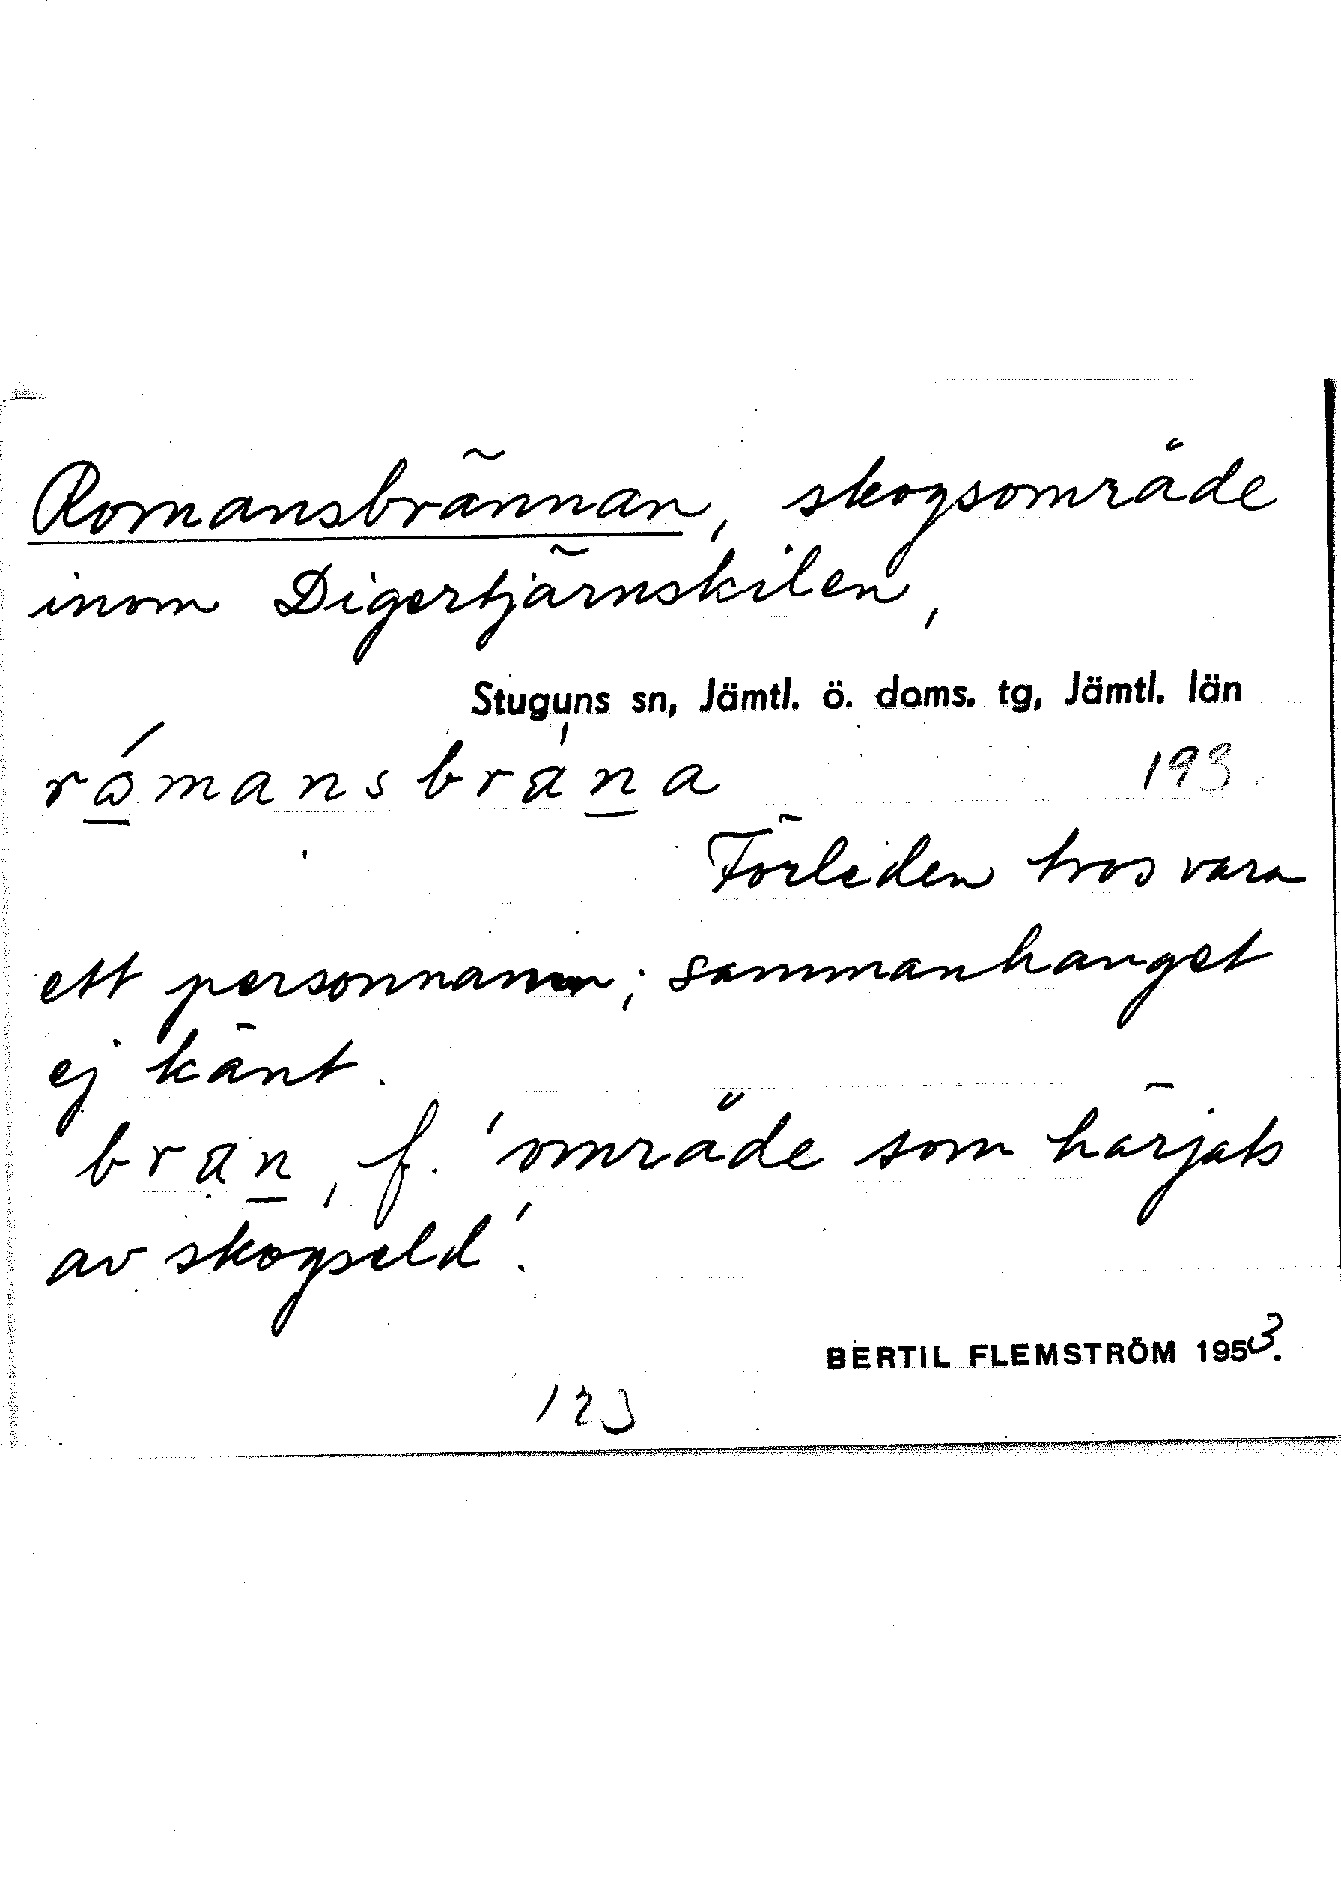 Romansbrännan, skogsområde
inom Digertjärnskilen,
Stuguns sn, Jämtl. ö. doms. tg, Jämtl. län
193
Förleden tros vara
ett personnamn; sammanhanget
ej känt.
bran, f. 'område som härjats
av skogseld'.
BERTIL FLEMSTRÖM 1953.
123